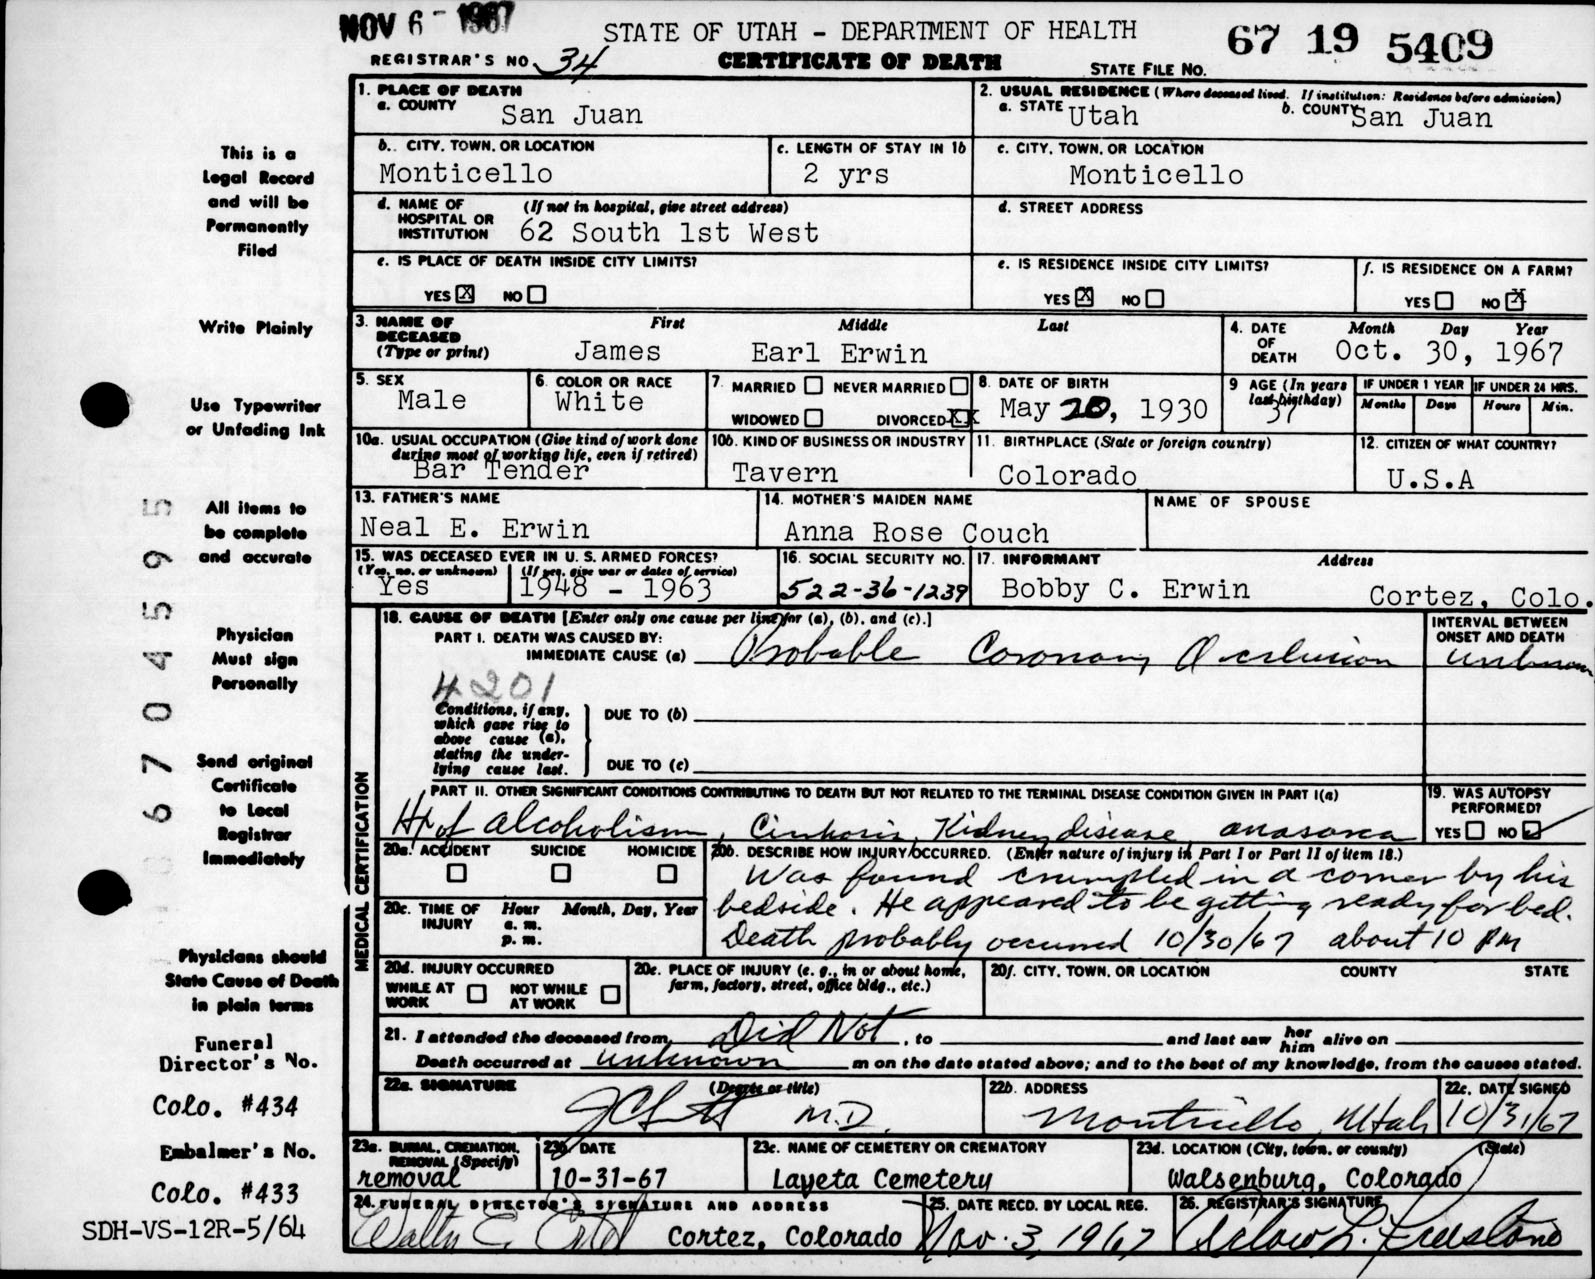 NOV 6 - 1967
STATE OF UTAH - DEPARTMENT OF HEALTH
67 19 5409
REGISTRAR'S NO. 34
CERTIFICATE OF DEATH
STATE FILE NO.
This is a
Legal Record
and will be
Permanently
Filed
Write Plainly
Use Typewriter
or Unfading Ink
All items to
be complete
and accurate
Physician
Must sign
Personally
Send original
Certificate
to Local
Registrar
Immediately
Physicians should
State Cause of Death
in plain terms
Funeral
Director's No.
Colo. #434
Embalmer's No.
Colo. #433
SDH-VS-12R-5/64
67045595
1. PLACE OF DEATH
a. COUNTY San Juan
2. USUAL RESIDENCE (Where deceased lived. If institution: Residence before admission)
a. STATE Utah b. COUNTY San Juan
b. CITY, TOWN, OR LOCATION
Monticello
c. LENGTH OF STAY IN 1b
2 yrs
c. CITY, TOWN, OR LOCATION
Monticello
d. NAME OF HOSPITAL OR INSTITUTION (If not in hospital, give street address)
62 South 1st West
d. STREET ADDRESS
e. IS PLACE OF DEATH INSIDE CITY LIMITS?
YES X NO
e. IS RESIDENCE INSIDE CITY LIMITS?
YES X NO
f. IS RESIDENCE ON A FARM?
YES NO X
3. NAME OF DECEASED (Type or print) First Middle Last
James Earl Erwin
4. DATE OF DEATH Month Day Year
Oct. 30, 1967
5. SEX
Male
6. COLOR OR RACE
White
7. MARRIED NEVER MARRIED
WIDOWED DIVORCED XX
8. DATE OF BIRTH
May 20, 1930
9 AGE (In years last birthday)
37
IF UNDER 1 YEAR IF UNDER 24 HRS.
Months Days Hours Min.
10a. USUAL OCCUPATION (Give kind of work done during most of working life, even if retired)
Bar Tender
10b. KIND OF BUSINESS OR INDUSTRY
Tavern
11. BIRTHPLACE (State or foreign country)
Colorado
12. CITIZEN OF WHAT COUNTRY?
U.S.A
13. FATHER'S NAME
Neal E. Erwin
14. MOTHER'S MAIDEN NAME
Anna Rose Couch
NAME OF SPOUSE
15. WAS DECEASED EVER IN U. S. ARMED FORCES?
(Yes, no, or unknown) (If yes, give war or dates of service)
Yes 1948 - 1963
16. SOCIAL SECURITY NO.
522-36-1239
17. INFORMANT Address
Bobby C. Erwin Cortez, Colo.
MEDICAL CERTIFICATION
18. CAUSE OF DEATH [Enter only one cause per line for (a), (b), and (c).]
PART I. DEATH WAS CAUSED BY:
IMMEDIATE CAUSE (a) Probable Coronary Occlusion
INTERVAL BETWEEN ONSET AND DEATH
unknown
4201
Conditions, if any, which gave rise to above cause (a), stating the underlying cause last.
DUE TO (b)
DUE TO (c)
PART II. OTHER SIGNIFICANT CONDITIONS CONTRIBUTING TO DEATH BUT NOT RELATED TO THE TERMINAL DISEASE CONDITION GIVEN IN PART I(a)
Hx of alcoholism, Cirrhosis, Kidney disease, anasarca
19. WAS AUTOPSY PERFORMED?
YES NO ✓
20a. ACCIDENT SUICIDE HOMICIDE
20b. DESCRIBE HOW INJURY OCCURRED. (Enter nature of injury in Part I or Part II of item 18.)
Was found crumpled in a corner by his
bedside. He appeared to be getting ready for bed.
Death probably occurred 10/30/67 about 10 PM
20c. TIME OF INJURY Hour Month, Day, Year
a. m.
p. m.
20d. INJURY OCCURRED
WHILE AT WORK NOT WHILE AT WORK
20e. PLACE OF INJURY (e. g., in or about home, farm, factory, street, office bldg., etc.)
20f. CITY, TOWN, OR LOCATION COUNTY STATE
21. I attended the deceased from Did Not, to and last saw her him alive on
Death occurred at unknown m on the date stated above; and to the best of my knowledge, from the causes stated.
22a. SIGNATURE (Degree or title)
M.D.
22b. ADDRESS
Monticello, Utah
22c. DATE SIGNED
10/31/67
23a. BURIAL, CREMATION, REMOVAL (Specify)
removal
23b. DATE
10-31-67
23c. NAME OF CEMETERY OR CREMATORY
Laveta Cemetery
23d. LOCATION (City, town, or county) (State)
Walsenburg, Colorado
24. FUNERAL DIRECTOR'S SIGNATURE AND ADDRESS
Cortez, Colorado
25. DATE RECD. BY LOCAL REG.
Nov. 3, 1967
26. REGISTRAR'S SIGNATURE